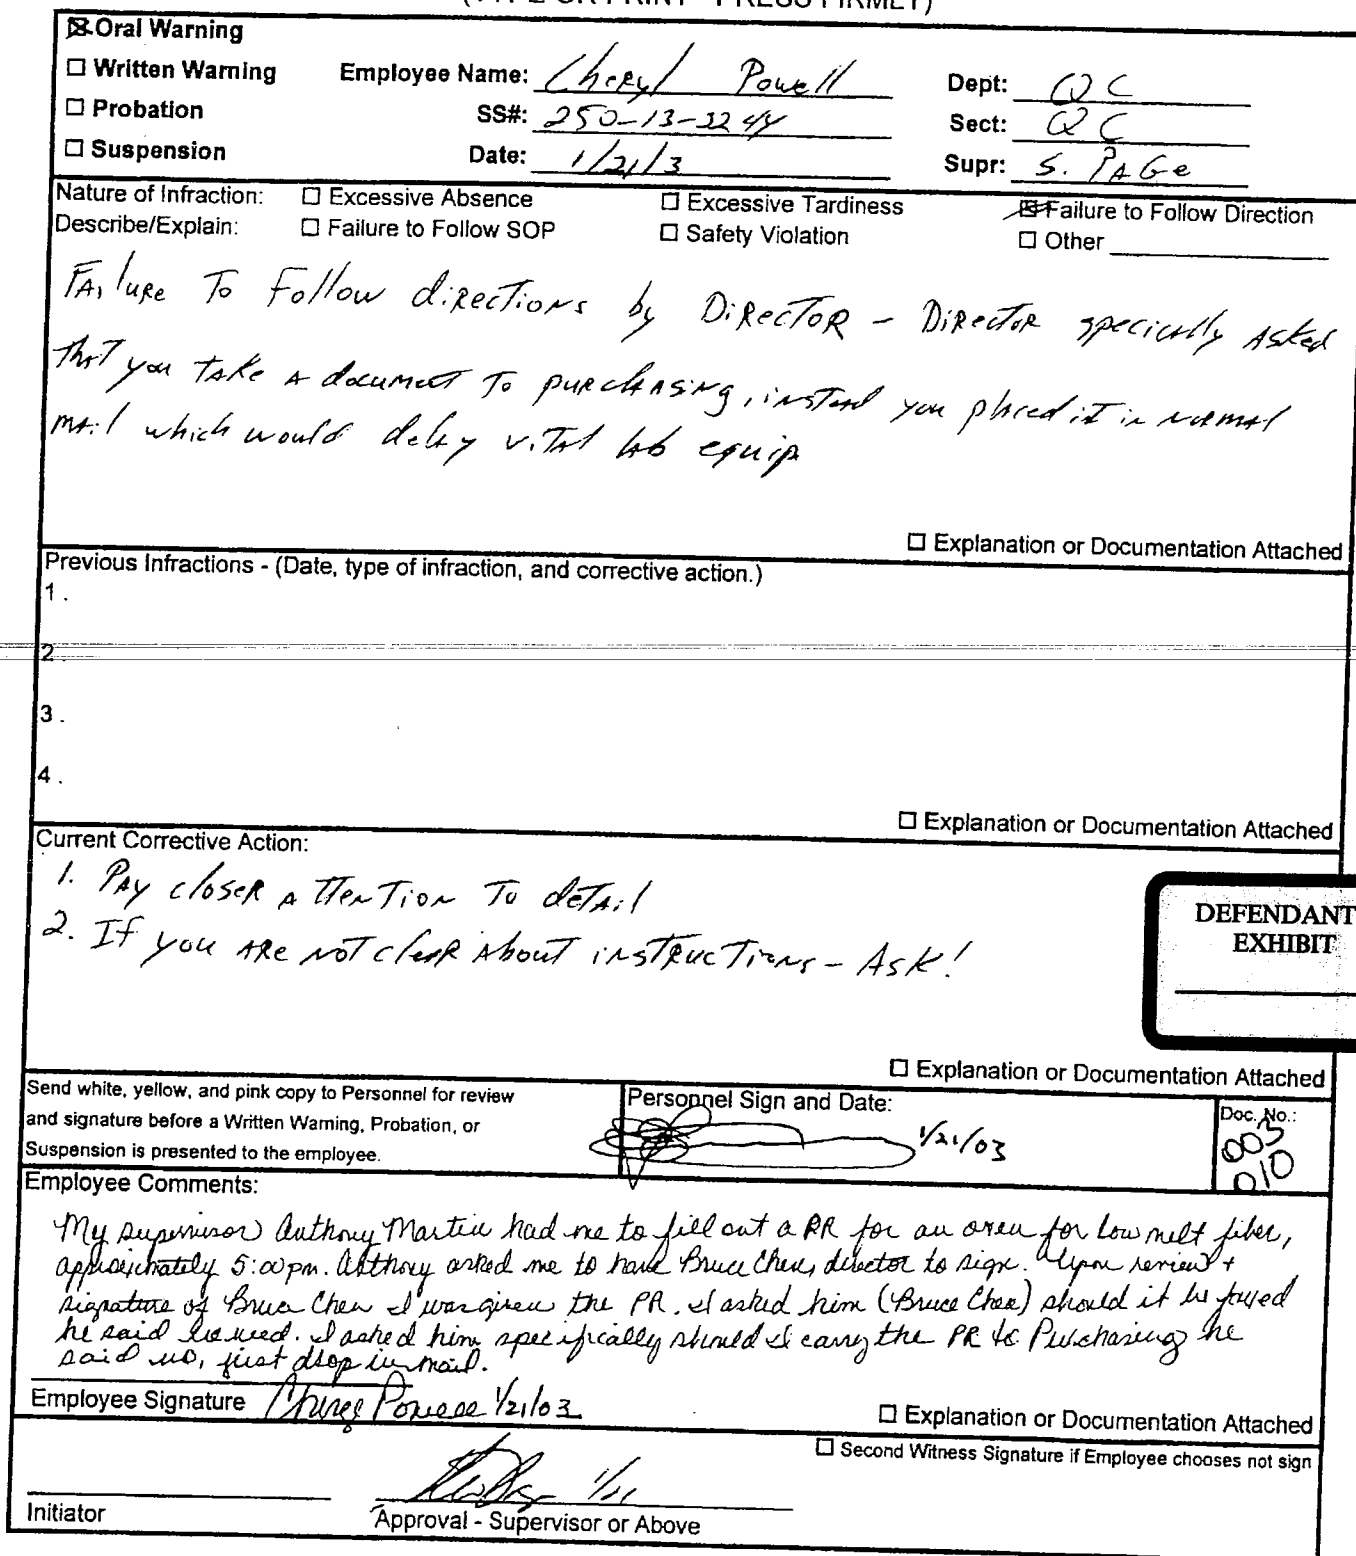 (TYPE OR PRINT - PRESS FIRMLY)
Oral Warning
Written Warning Employee Name: Cheryl Powell Dept: QC
Probation SS#: 250-13-3244 Sect: QC
Suspension Date: 1/21/3 Supr: S. PAGe
Nature of Infraction: Excessive Absence Excessive Tardiness Failure to Follow Direction
Describe/Explain: Failure to Follow SOP Safety Violation Other
FAilure To Follow diRecTions by DiRecToR - DiRecToR specically Asked
ThAT you TAKe A document To puRchAsing, instead you plAced it in normAl
mAil which would delAy viTAl lAb equip
Explanation or Documentation Attached
Previous Infractions - (Date, type of infraction, and corrective action.)
1.
2.
3.
4.
Explanation or Documentation Attached
Current Corrective Action:
1. PAy closeR ATTenTion To deTAil
2. If you ARe noT cleAR About insTRucTions - Ask!
DEFENDANT
EXHIBIT
Explanation or Documentation Attached
Send white, yellow, and pink copy to Personnel for review
and signature before a Written Warning, Probation, or
Suspension is presented to the employee.
Personnel Sign and Date:
1/21/03
Doc. No.:
003
010
Employee Comments:
My supervisor Anthony Martin had me to fill out a PR for an oven for low melt fiber,
approximately 5:00pm. Anthony asked me to have Bruce Chen, director to sign. Upon review +
signature of Bruce Chen I was given the PR. I asked him (Bruce Chen) should it be faxed
he said no need. I asked him specifically should I carry the PR to Purchasing he
said no, just drop in mail.
Employee Signature Cheryl Powell 1/21/03
Explanation or Documentation Attached
Second Witness Signature if Employee chooses not sign
1/21
Initiator Approval - Supervisor or Above